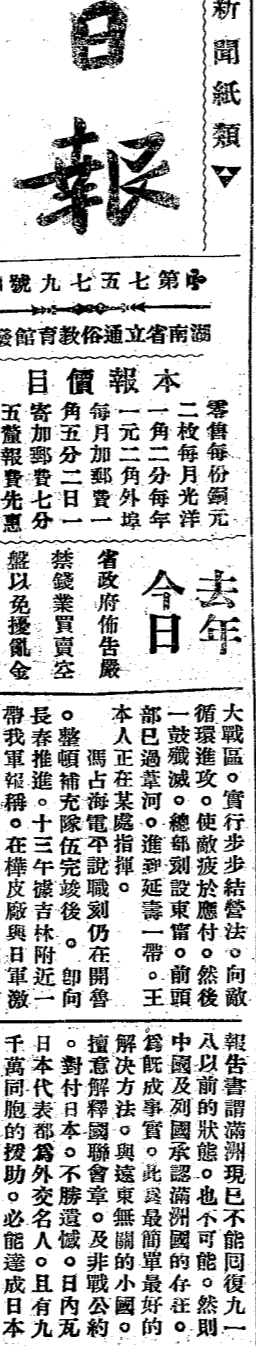 新聞紙類
日報
第七五七九號
湖南省立通俗教育館發
本報價目
零售每份銅元
二枚每月光洋
一角二分每年
一元二角外埠
每月加郵費一
角五分二日一
寄加郵費七分
五釐報費先惠
去年
今日
省政府佈告嚴
禁錢業買賣空
盤以免擾亂金
大戰區。實行步步結營法。向敵
循環進攻。使敵疲於應付。然後
一鼓殲滅。總部刻設東甯。前頭
部已過葦河。進到延壽一帶。王
本人正在某處指揮。
馮占海電平說職刻仍在開魯
。整頓補充隊伍完竣後。卽向
長春推進。十三午據吉林附近一
帶我軍報稱。在樺皮廠與日軍激
報告書謂滿洲現已不能囘復九一
八以前的狀態。也不可能。然則
中國及列國承認滿洲國的存在。
爲既成事實。此爲最簡單最好的
解決方法。與遠東無關的小國。
擅意解釋國聯會章。及非戰公約
。對付日本。不勝遺憾。日內瓦
日本代表都爲外交名人。且有九
千萬同胞的援助。必能達成日本